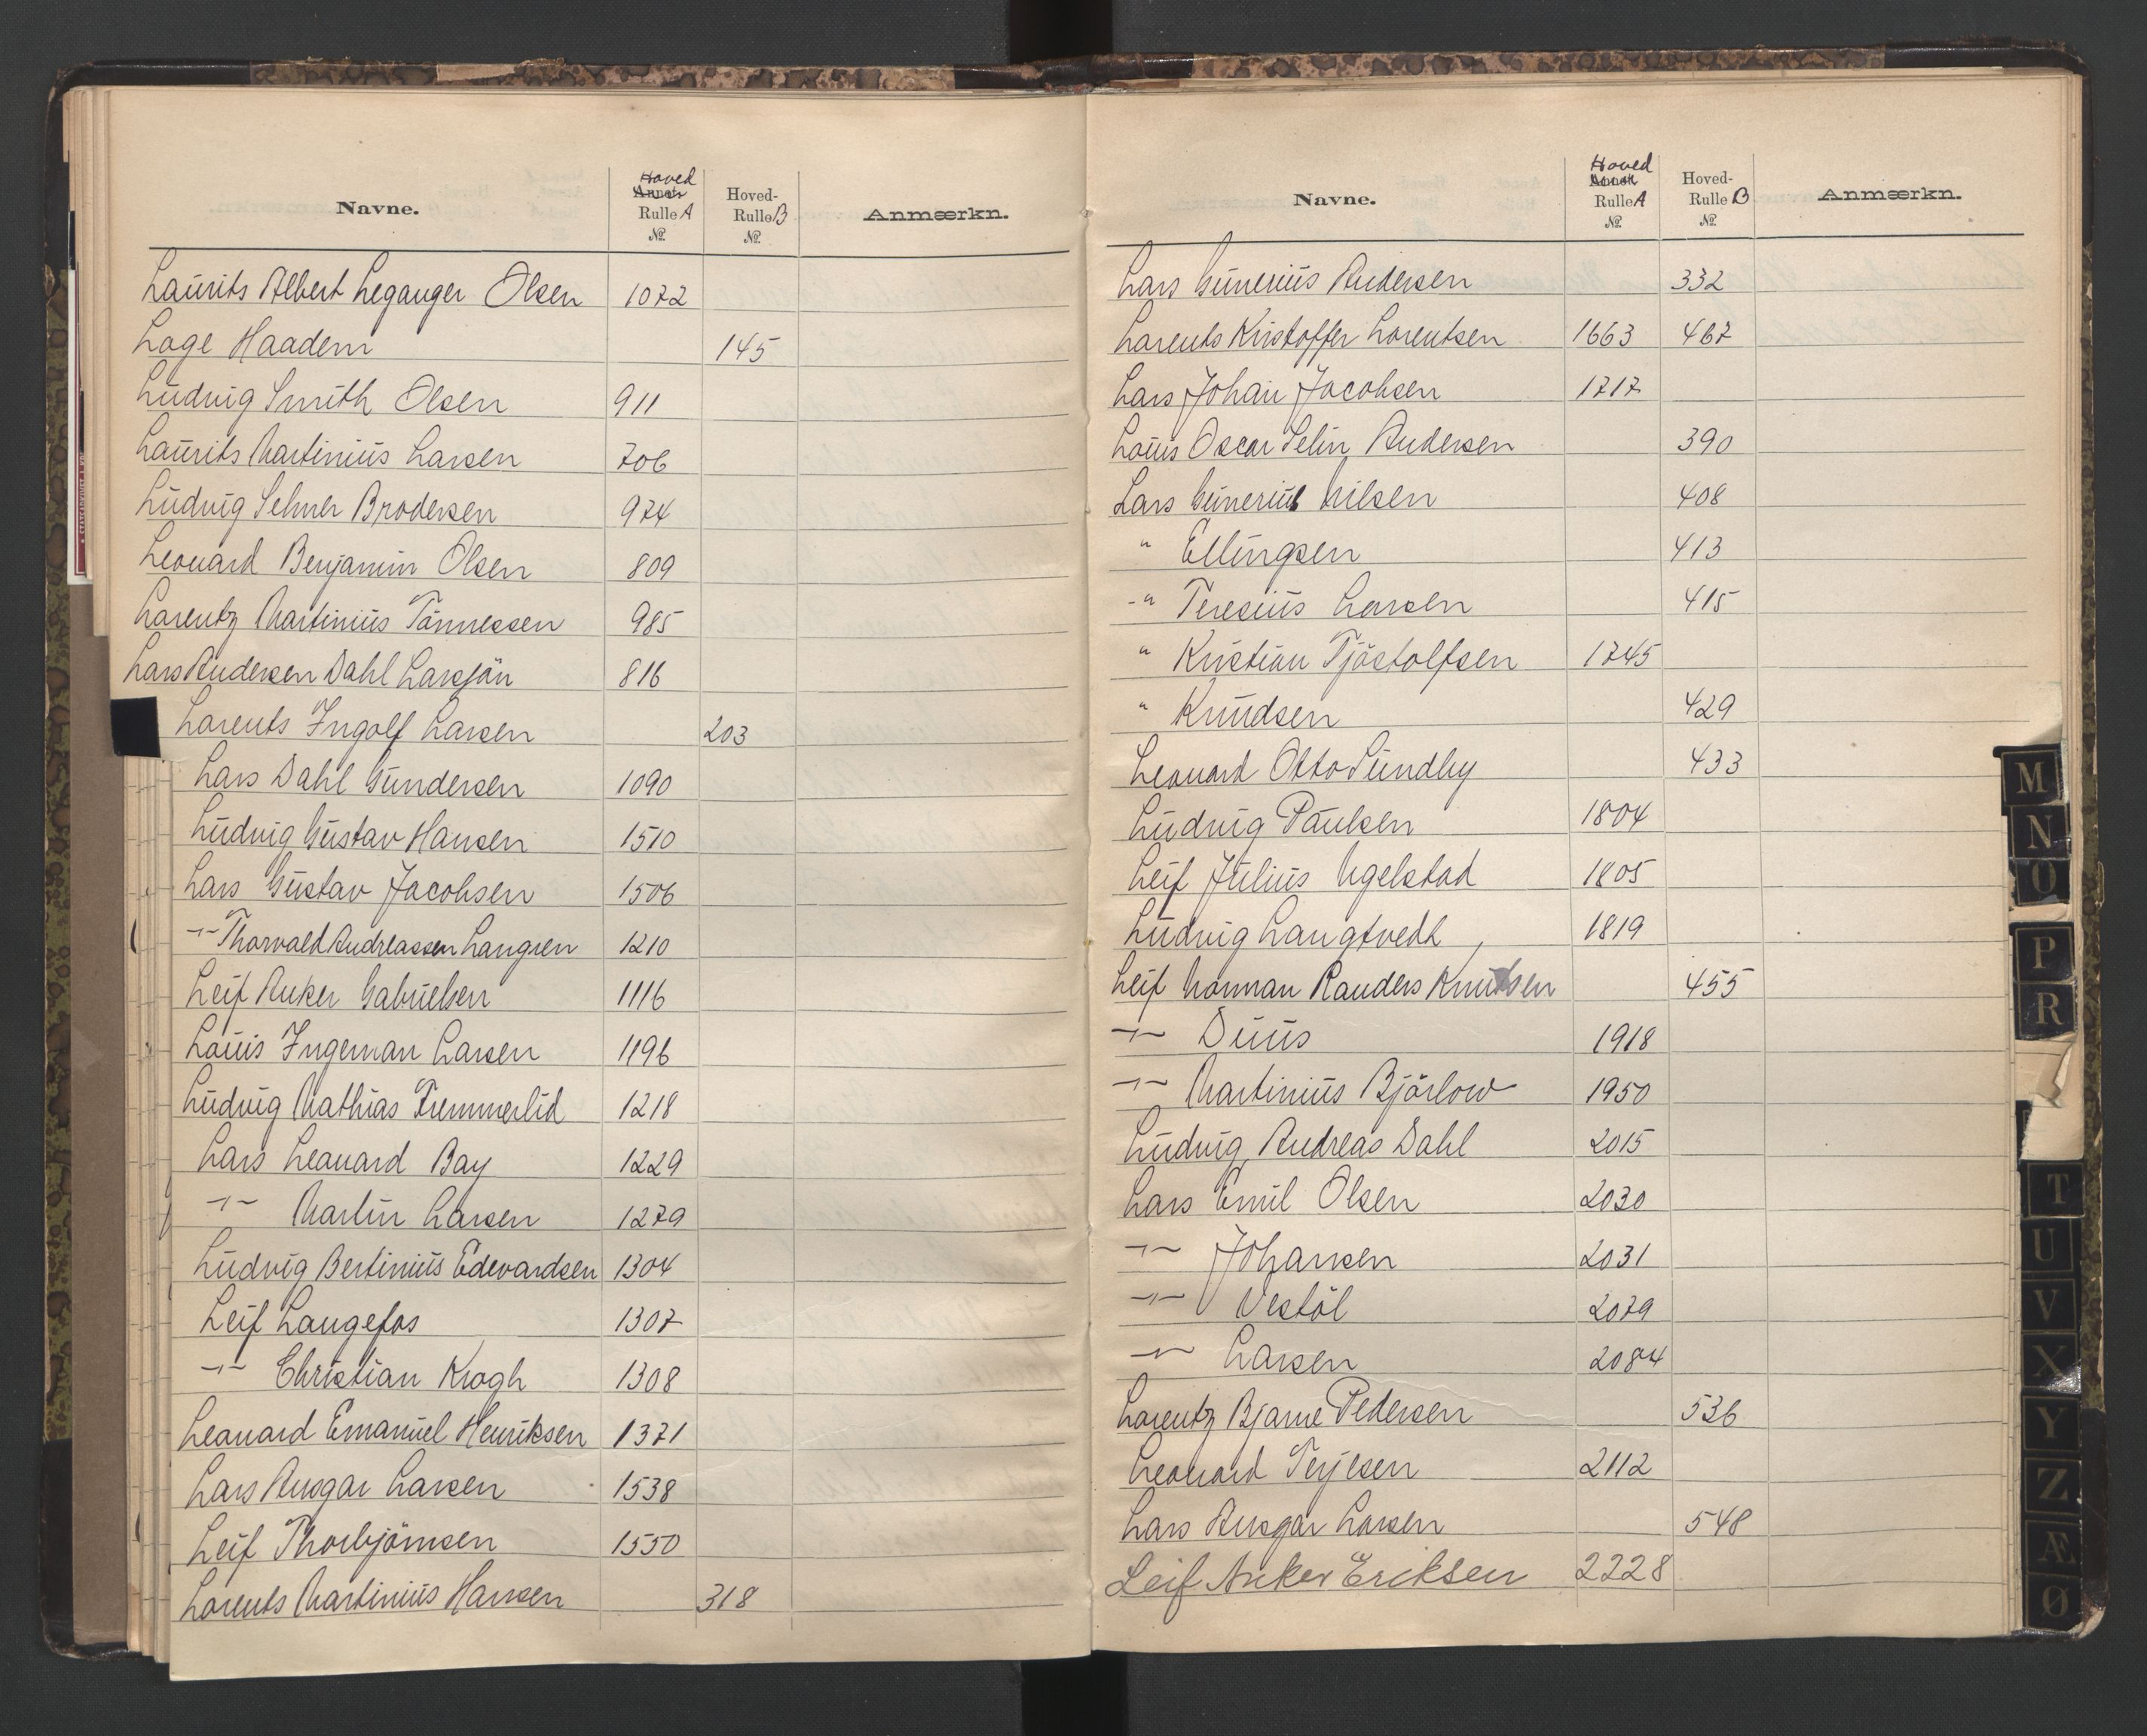 Navne. Hoved Rulle A № Hoved-Rulle B № Anmærkn.
Laurits Albert Leganger Olsen 1072
Lage Haadem 145
Ludvig Smith Olsen 911
Laurits Martinius Larsen 706
Ludvig Selmer Brodersen 974
Leonard Benjamin Olsen 809
Lorentz Martinius Tönnessen 985
Lars Andersen Dahl Larsjön 816
Lorents Ingolf Larsen 203
Lars Dahl Gundersen 1090
Ludvig Gustav Hansen 1510
Lars Gustav Jacobsen 1506
-"- Thorvald Andreassen Langsen 1210
Leif Anker Gabrielsen 1116
Louis Ingeman Larsen 1196
Ludvig Mathias Tremmerlid 1218
Lars Leonard Bay 1229
-"- Martin Larsen 1279
Ludvig Bertinius Edvardsen 1304
Leif Langefos 1307
-"- Christian Krogh 1308
Leonard Emanuel Henriksen 1371
Lars Ansgar Larsen 1538
Leif Thorbjörnsen 1550
Lorents Martinius Hansen 318
Navne. Hoved Rulle A № Hoved-Rulle B № Anmærkn.
Lars Gunerius Andersen 332
Lorents Kristoffer Lorentsen 1663 467
Lars Johan Jacobsen 1717
Louis Oscar Selin Andersen 390
Lars Gunerius Nilsen 408
" Ellingsen 413
-" Teresius Larsen 415
" Kristian Tjöstolfsen 1745
" Knudsen 429
Leonard Otto Sundby 433
Ludvig Paulsen 1804
Leif Julius Ugelstad 1805
Ludvig Langtvedt 1819
Leif Norman Randers Knutsen 455
-"- Duus 1918
-"- Martinius Björlow 1950
Ludvig Andreas Dahl 2015
Lars Emil Olsen 2030
-"- Johansen 2031
-"- Vestöl 2079
-"- Larsen 2084
Lorentz Bjarne Pedersen 536
Leonard Terjesen 2112
Lars Ansgar Larsen 548
Leif Anker Eriksen 2228
M
N
O
P
R
T
U
V
X
Y
Z
Æ
Ø